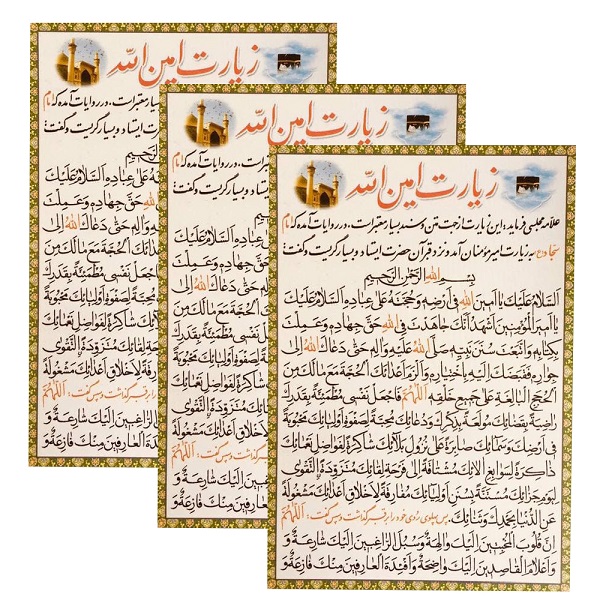 زیارت امین الله
علامه مجلسی فرماید: این زیارت از جهت متن و سند بسیار معتبر است، در روایات آمده که امام
سجاد (ع) به زیارت امیر مؤمنان آمد و نزد قبر آن حضرت ایستاد و بسیار گریست و گفت:
بِسْمِ اللهِ الرَّحْمٰنِ الرَّحیمِ
اَلسَّلامُ عَلَیْکَ یا اَمینَ اللهِ فی اَرْضِهِ وَ حُجَّتَهُ عَلی عِبادِهِ اَلسَّلامُ عَلَیْکَ
یا اَمیرَ الْمُؤْمِنینَ اَشْهَدُ اَنَّکَ جاهَدْتَ فِی اللهِ حَقَّ جِهادِهِ وَ عَمِلْتَ
بِکِتابِهِ وَ اتَّبَعْتَ سُنَنَ نَبِیِّهِ صَلَّی اللهُ عَلَیْهِ وَ الِهِ حَتّی دَعاکَ اللهُ اِلی
جِوارِهِ فَقَبَضَکَ اِلَیْهِ بِاخْتِیارِهِ وَ اَلْزَمَ اَعْدائَکَ الْحُجَّةَ مَعَ مالَکَ مِنَ
الْحُجَجِ الْبالِغَةِ عَلی جَمیعِ خَلْقِهِ اَللّهُمَّ فَاجْعَلْ نَفْسی مُطْمَئِنَّةً بِقَدَرِکَ
راضِیَةً بِقَضائِکَ مُولَعَةً بِذِکْرِکَ وَ دُعائِکَ مُحِبَّةً لِصَفْوَةِ اَوْلِیائِکَ مَحْبُوبَةً
فی اَرْضِکَ وَ سَمائِکَ صابِرَةً عَلی نُزُولِ بَلائِکَ شاکِرَةً لِفَواضِلِ نَعْمائِکَ
ذاکِرَةً لِسَوابِغِ الائِکَ مُشْتاقَةً اِلی فَرْحَةِ لِقائِکَ مُتَزَوِّدَةً التَّقْوی
لِیَوْمِ جَزائِکَ مُسْتَنَّةً بِسُنَنِ اَوْلِیائِکَ مُفارِقَةً لِاَخْلاقِ اَعْدائِکَ مَشْغُولَةً
عَنِ الدُّنْیا بِحَمْدِکَ وَ ثَنائِکَ. پس پهلوی روی خود را بر قبر گذاشت و پس گفت: اَللّهُمَّ
اِنَّ قُلُوبَ الْمُخْبِتینَ اِلَیْکَ والِهَةٌ وَ سُبُلَ الرّاغِبینَ اِلَیْکَ شارِعَةٌ وَ
وَ اَعْلامَ الْقاصِدینَ اِلَیْکَ واضِحَةٌ وَ اَفْئِدَةَ الْعارِفینَ مِنْکَ فازِعَةٌ وَ